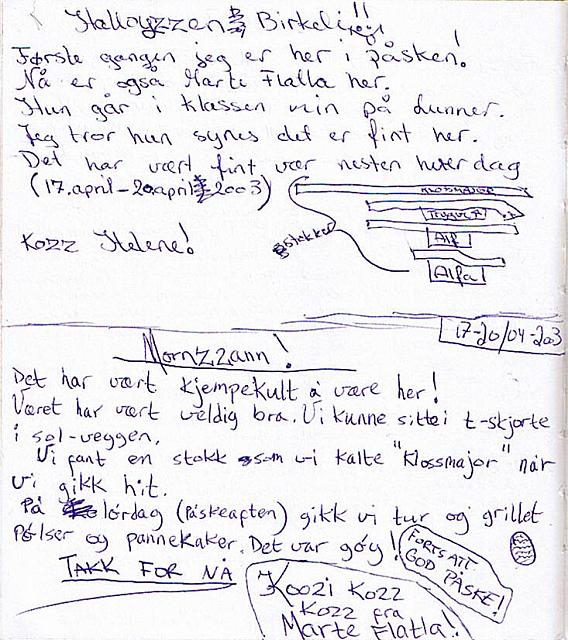 Halloyzzen Birkeli!!
Første gangen jeg er her i påsken!
Nå er også Marte Flatla her.
Hun går i klassen min på Lunner.
Jeg tror hun synes det er fint her.
Det har vært fint vær nesten hver dag
(17.april-20april 2003)
KLOSSMAJOR
Alf
Alfa
stokker
Kozz Helene!
17-20/04-2003
Mornzzann!
Det har vært kjempekult å være her!
Været har vært veldig bra. Vi kunne sitte i t-skjorte
i sol-veggen.
Vi fant en stokk som vi kalte "Klossmajor" når
vi gikk hit.
På lørdag (påskeaften) gikk vi tur og grillet
pølser og pannekaker. Det var góy!
FORTSATT
GOD PÅSKE!
TAKK FOR NÅ
Koozi Kozz
Kozz fra
Marte Flatla!